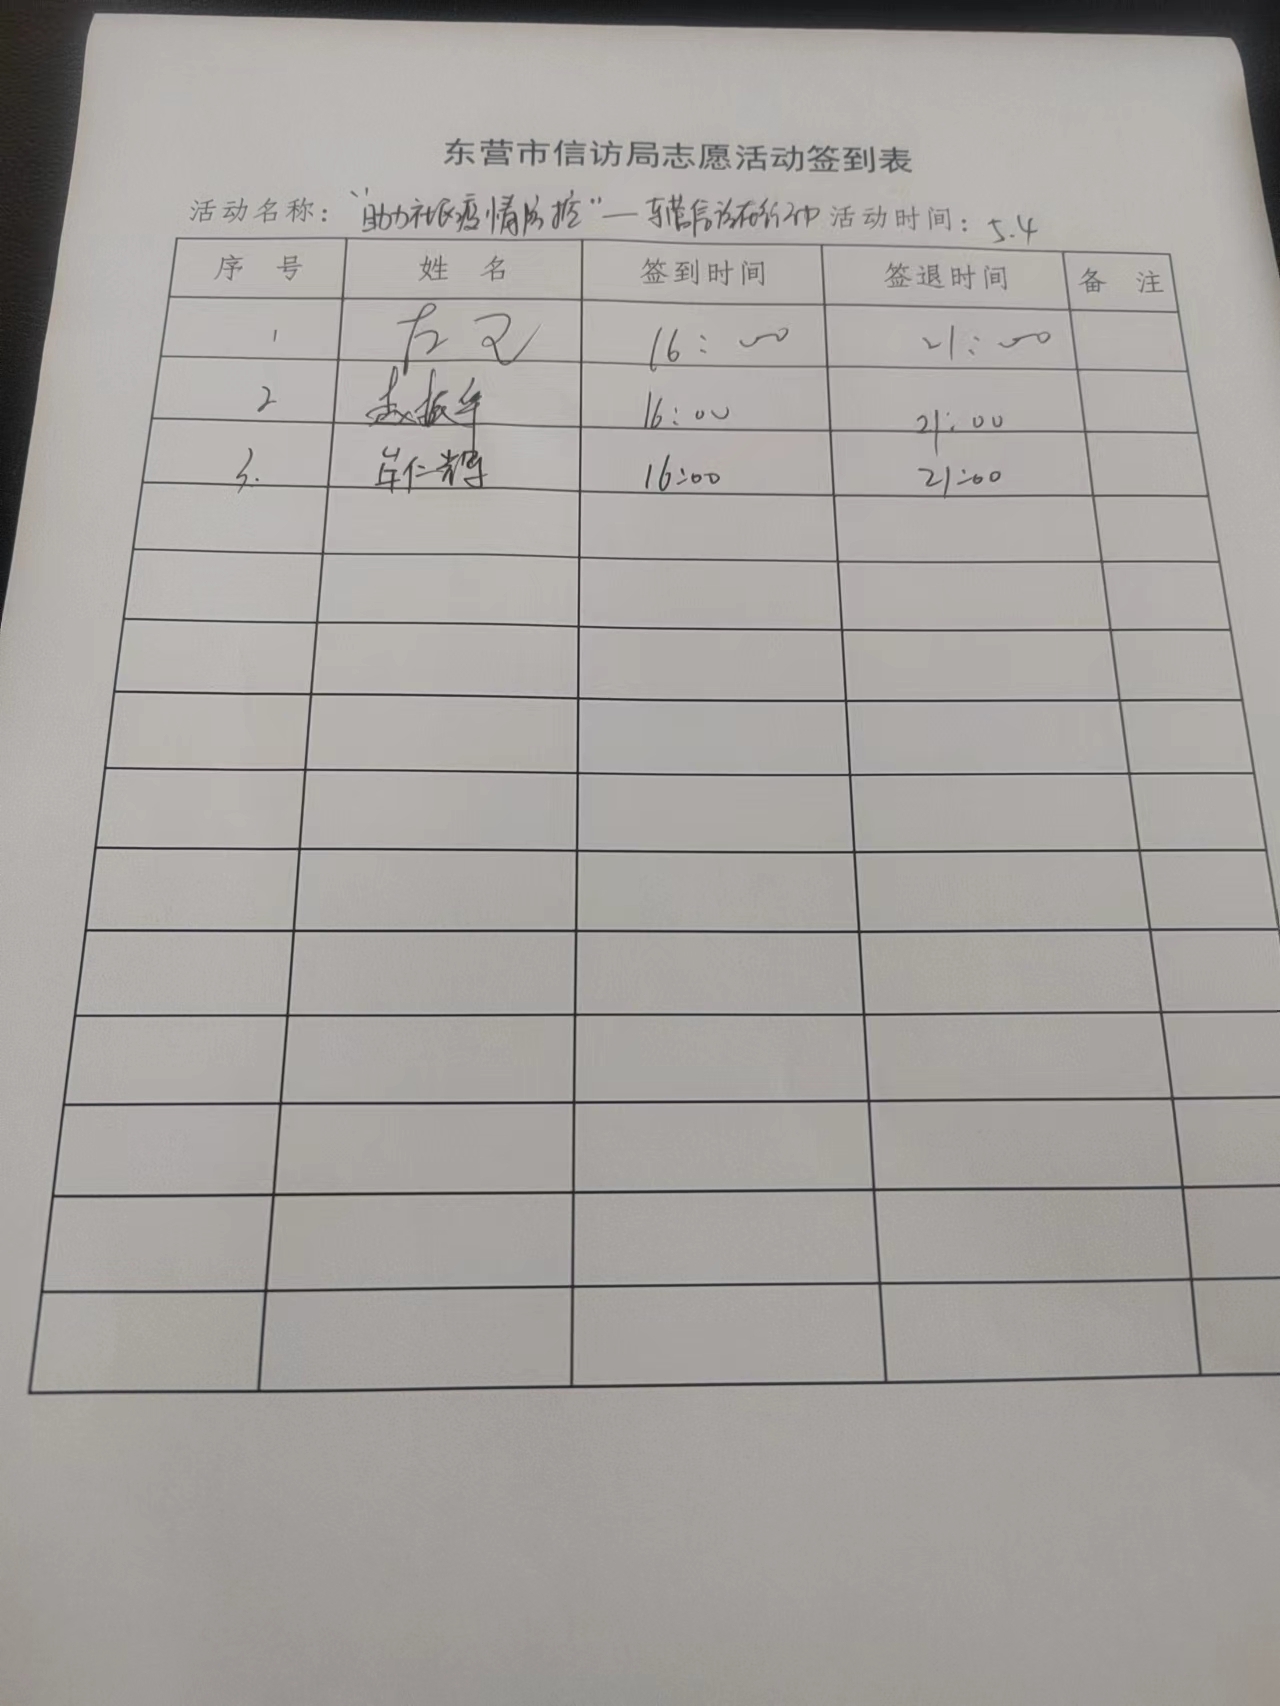 东营市信访局志愿活动签到表
活动名称："助力社区疫情防控"—东营信访在行动 活动时间：5.4
序 号 姓 名 签到时间 签退时间 备 注
1 左 16:00 21:00
2 赵振华 16:00 21:00
3. 岸仁辉 16:00 21:00